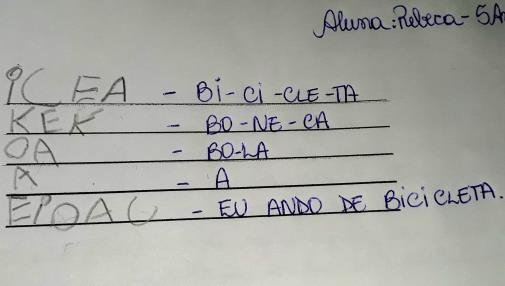 Aluna: Rebeca - 5A
iCEA - Bi-Ci-CLE-TA
KEK - BO-NE-CA
OA - BO-LA
A - A
EPOAC - EU ANDO DE BiCiCLETA.